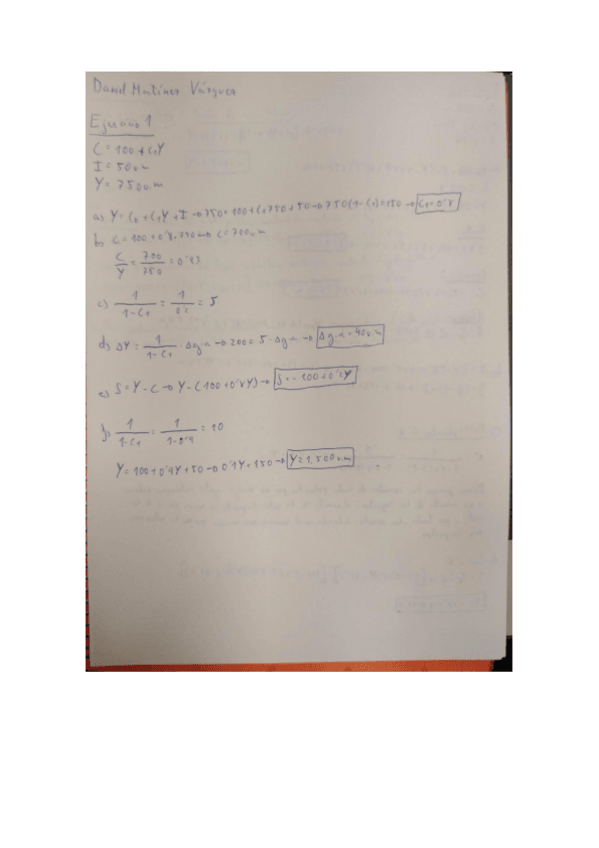 David Martínez Vázquez
Ejercicio 1
C = 100 + C₁Y
I = 50 u.m
Y = 750 u.m
a) Y = C₀ + C₁Y + I → 750 = 100 + C₁750 + 50 → 750(1 - C₁) = 150 → C₁ = 0'8
b) C = 100 + 0'8 · 750 → C = 700 u.m
C/Y = 700/750 = 0'93
c) 1/(1-C₁) = 1/0'2 = 5
d) ΔY = 1/(1-C₁) · Δg.a → 200 = 5 · Δg.a → Δg.a = 40 u.m
e) S = Y - C → Y - (100 + 0'8Y) → S = - 100 + 0'2Y
f) 1/(1-C₁) = 1/(1-0'9) = 10
Y = 100 + 0'9Y + 50 → 0'1Y = 150 → Y = 1.500 u.m